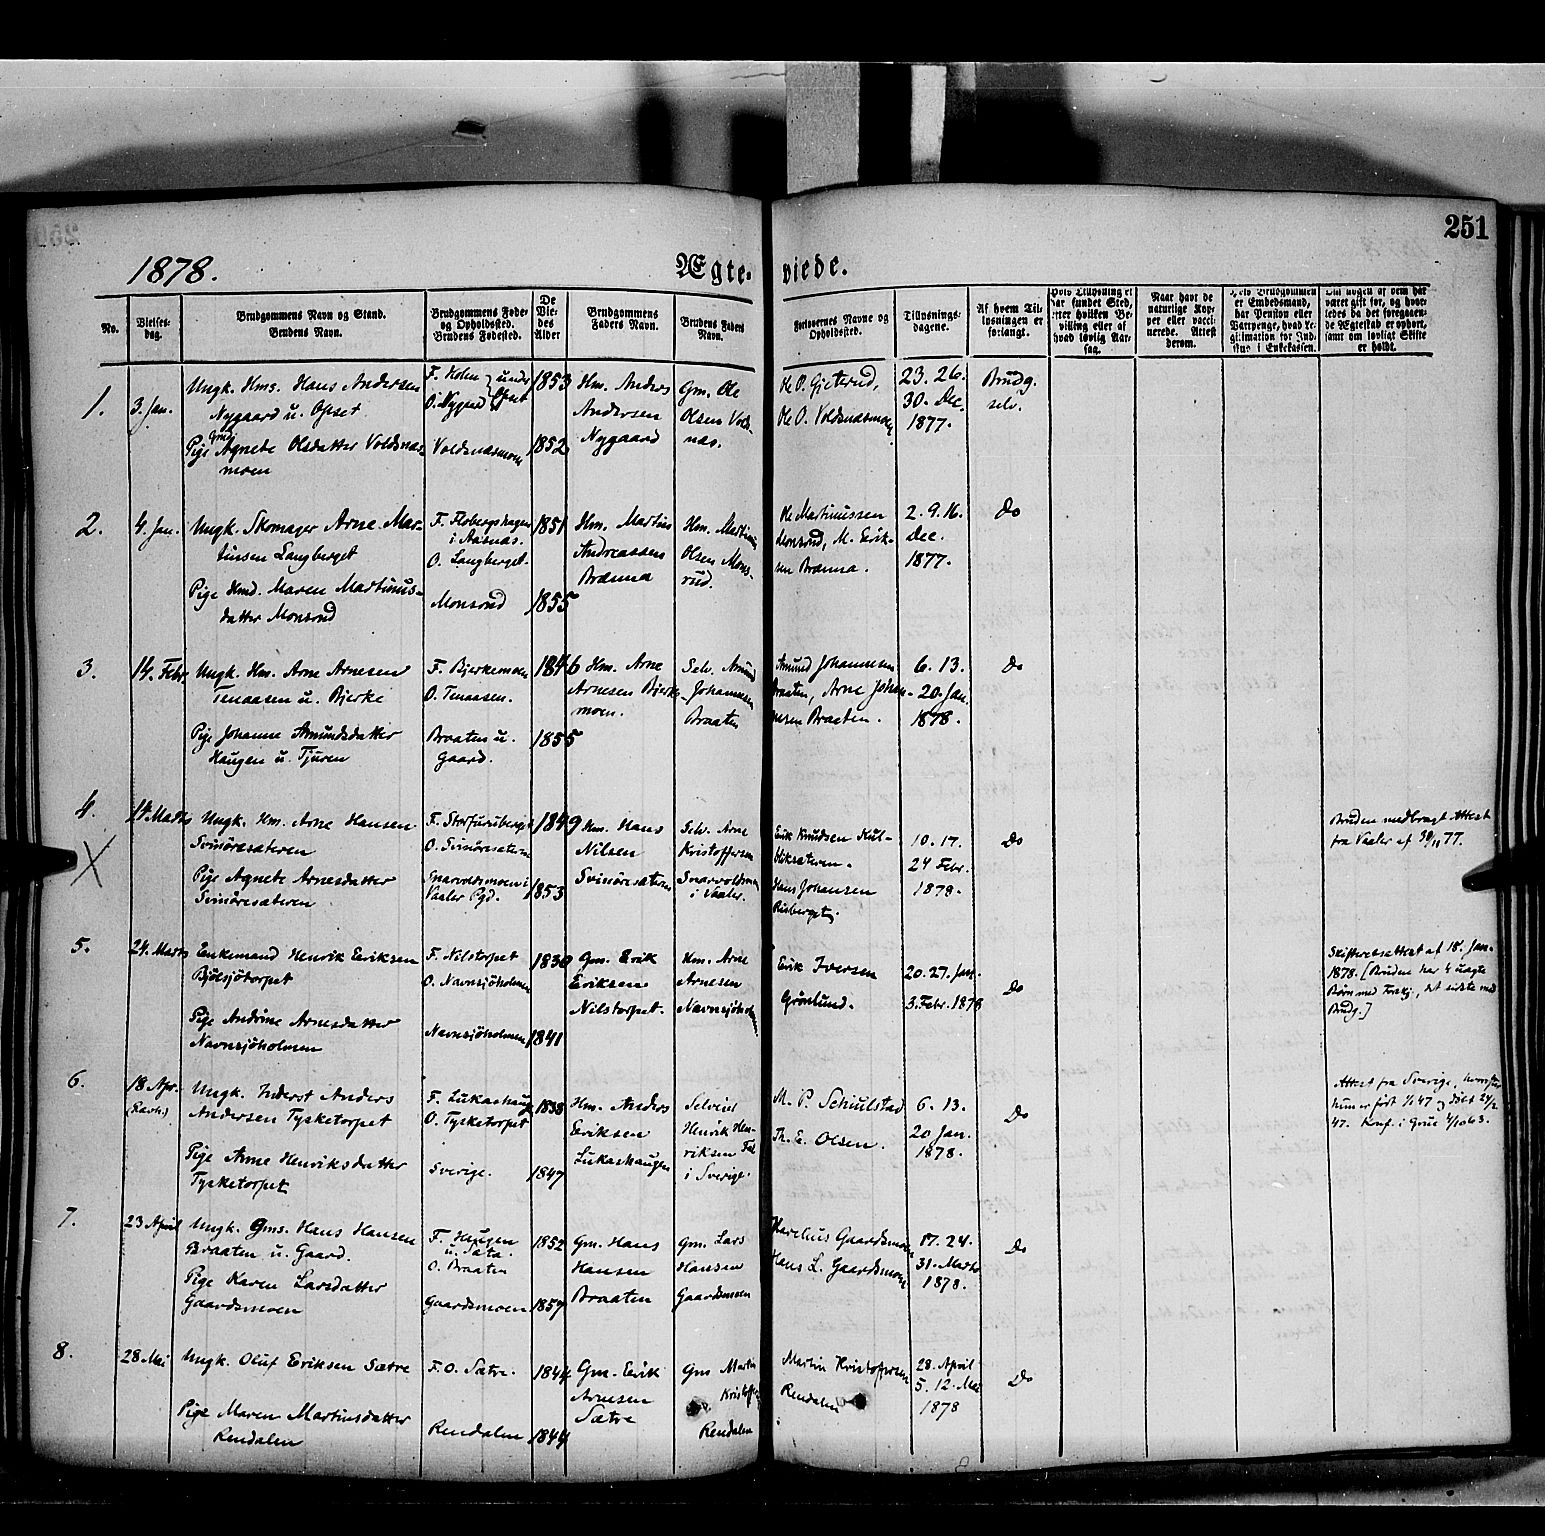 251
1878.
Ægte- viede.
No.
Vielses-
dag.
Brudgommens Navn og Stand.
Brudens Navn.
Brudgommens Føde-
og Opholdssted.
Brudens Fødested.
De
Vie-
des
Alder
Brudgommens
Faders Navn.
Brudens Faders
Navn.
Forlovernes Navne og
Opholdssted.
Tillysnings-
dagene.
Af hvem Til-
lysningen er
forlangt.
Naar havt de
naturlige Kop-
per eller vacci-
nerede. Attest
derom.
1.
3. Jan.
Ungk. Hms. Hans Andersen
Nygaard u. Opset
Pige Gmd Agnete Olsdatter Voldsnæs
moen
F. Holen
O. Nygaard
under
Opset
Voldsnæsmoen
1853
1852
Hm. Anders
Andersen
Nygaard
Gm. Ole
Olsen Volds-
næs.
Ole P. Gjeterud,
Ole O. Voldsnæsmoen
23. 26.
30. Dec.
1877.
Brudg.
selv.
2.
4. Jan.
Ungk. Skomager Arne Mar-
tinsen Langberget
Pige Hmd. Maren Martinus-
datter Monsrud
F. Flobergshagen
i Aasnæs.
O. Langberget.
Monsrud
1851
1855
Hm. Martin
Andreassen
Brænna
Hm. Martinus
Olsen Mons-
rud.
Ole Martinussen
Monsrud, M. Erik-
sen Brænna.
2. 9. 16.
Dec.
1877.
Do
3.
14. Febr.
Ungk. Hm. Arne Arnesen
Tenaasen u. Bjerke
Pige Johanne Amundsdatter
Haugen u. Tjuren
F. Bjerkemoen
O. Tenaasen.
Braaten u.
Gaard.
1846
1855
Hm. Arne
Arnesen Bjerke-
moen.
Selv. Amund
Johannesen
Braaten
Amund Johannesen
Braaten, Arne Johan-
nesen Braaten.
6. 13.
20. Jan.
1878.
Do
4.
X
14 Marts
Ungk. Hm. Arne Hansen
Svinöresæteren
Pige Agnete Arnesdatter
Svinöresæteren
F. Storfuruberget
O. Svinöresæteren
Snarvoldsmoen i
Vaaler Pgd.
1849
1853
Hm. Hans
Nilsen
Svinöresæteren
Selv. Arne
Kristoffersen
Snarvoldsmoen
i Vaaler.
Erik Knudsen Kul-
bliksæteren.
Hans Johansen
Risberget.
10. 17.
24 Febr.
1878.
Do
Bruden medbragt Attest
fra Vaaler af 30/11 77.
5.
24. Marts
Enkemand Henrik Eriksen
Björsjötorpet
Pige Andrine Arnesdatter
Navnsjöholmen
F. Nilstorpet
O. Navnsjöholmen
Navnsjöholmen
1830
1841
Gm. Erik
Eriksen
Nilstorpet.
Hm. Arne
Arnesen
Navnsjöholmen
Erik Iversen
Grönlund.
20. 27. Jan.
3. Febr. 1878
Do
Skifteretsattest af 18. Jan.
1878. [Bruden har 4 uægte
Börn med Forskj., det sidste med
Brudg.]
6.
18 Apr.
Ungk. Inderst Anders
Andersen Tysketorpet
Pige Anne Henriksdatter
Tysketorpet
F. Lukashaug
O. Tysketorpet
Sverige.
1838
1847
Hm. Anders
Eriksen
Lukashaugen
Selveier
Henrik Hen-
riksen
i Sverige.
M. P. Schiulstad
Th. E. Olsen.
6. 13.
20 Jan.
1878.
Do
Attest fra Sverige, hvorefter
hun er födt 47 og döbt
47. Konf. i Grue 4/10 63.
7.
23 April
Ungk. Gms. Hans Hansen
Braaten u. Gaard.
Pige Karen Larsdatter
Gaardsmoen
F. Haugen
u. Sata.
O. Braaten
Gaardsmoen
1852
1857
Gm. Hans
Hansen
Braaten
Gm. Lars
Hansen
Gaardsmoen
Marelius Gaardsmoen
Hans L. Gaardsmoen
17. 24.
31. Marts
1878.
Do
8.
28 Mai
Ungk. Oluf Eriksen Sætre
Pige Maren Martinsdatter
Rendalen
F. O. Sætre.
Rendalen
1844
1844
Gm. Erik
Arnesen
Sætre
Gm Martin
Kristoffersen
Rendalen
Martin Kristoffersen
Rendalen
28. April
5. 12. Mai
1878
Do